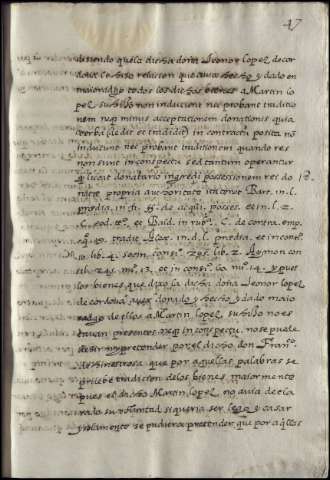 47
diziendo que la dicha doña Leonor lopez de cor
doua hizo relacion que auia hecho y dado en
maioradgo todos los dichos bienes a Martin lo
pez su hijo non inducunt nec probant traditio
nem neq minus acceptationem donationis quia
verba (dedit et tradidit) in contractu posita nō
inducunt nec probant traditionem quando res
non sunt in conspectu sed tantum operantur
q liceat donatario ingredi possessionem rei do
nate propria auctoritate ita not. Bart. in l.
predia, in ff. de acqui. posses. et in l. 2.
C. eod. et Bald. in rub. C. de contra. emp.
in d. l. predia, et in
lib. 4. consi. lib. 2. Aymon con
245. nu. 13. et in consi. nu. 14. y pues
los bienes que dixo la dicha doña Leonor lopez
de cordoua auer donado y hecho y dado maio
radgo de ellos a Martin lopez, su hijo no es
tauan presentes neq in conspectu, no se puede
dezir ny pretender por el dicho don Franco
de hinestrosa que por aquellas palabras se
pruebe tradicion de los bienes, maiormente
pues el dicho Martin lopez no auia decla
rado su voluntad si queria ser lego y casar
y solamente se pudiera pretender que por aqllas